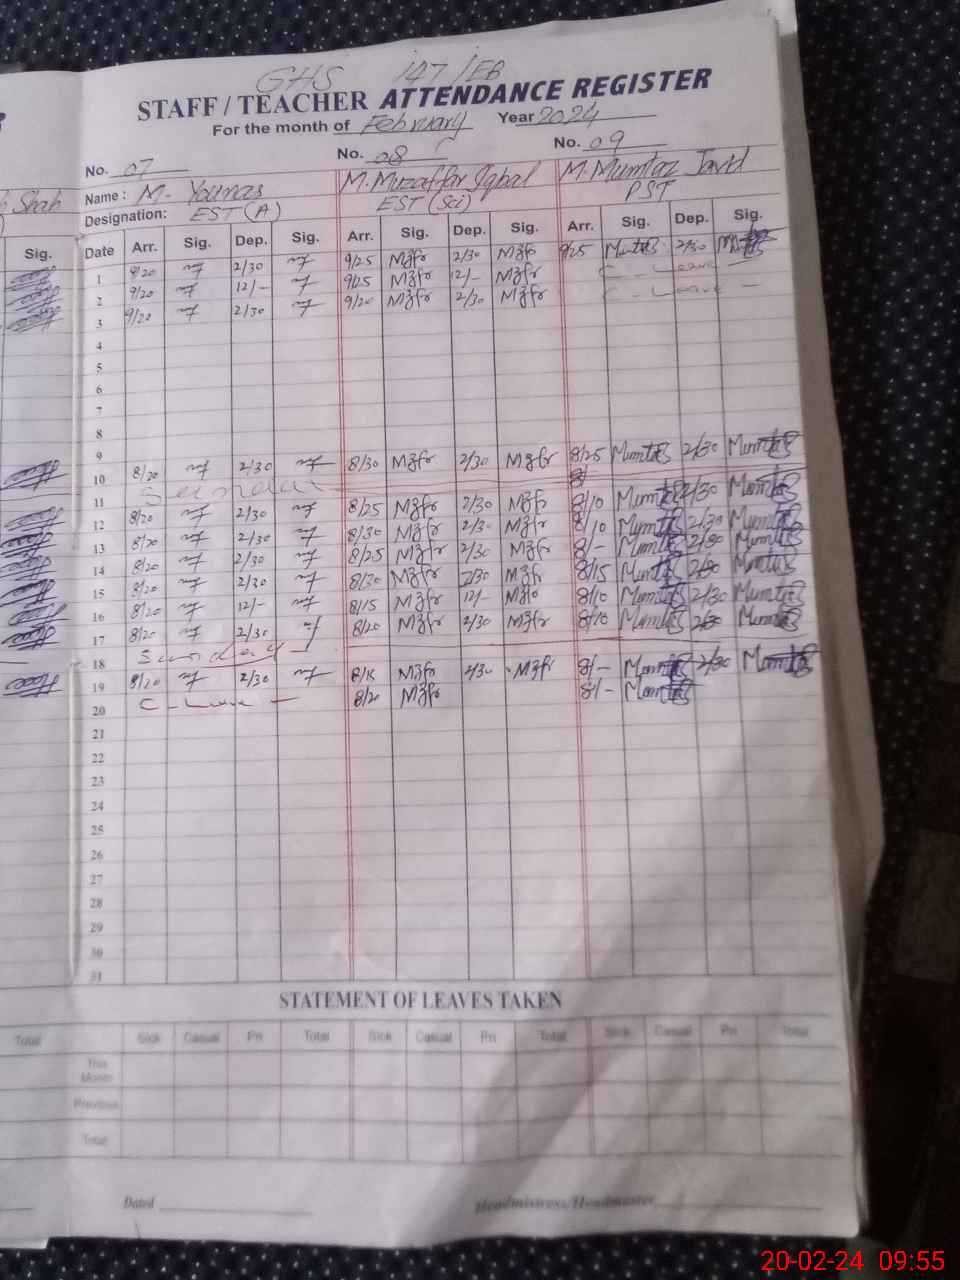 GHS 147/EB
STAFF / TEACHER ATTENDANCE REGISTER
For the month of February Year 2024
No. 07 No. 08 No. 09
Shah Name : M. Younas M. Muzaffar Iqbal M. Mumtaz Javid
Designation: EST (A) EST (Sci) PST
Sig. Date Arr. Sig. Dep. Sig. Arr. Sig. Dep. Sig. Arr. Sig. Dep. Sig.
1 9/20 2/30 9/25 Mzfr 2/30 Mzfr 9/25 Mumtaz 2/30 Mumtaz
2 9/20 12/- 9/25 Mzfr 12/- Mzfr C - Leave -
3 9/20 2/30 9/20 Mzfr 2/30 Mzfr C - Leave -
4
5
6
7
8
9
10 8/20 2/30 8/30 Mzfr 2/30 Mzfr 8/25 Mumtaz 2/30 Mumtaz
11 Sunday
12 8/20 2/30 8/25 Mzfr 2/30 Mzfr 8/10 Mumtaz 2/30 Mumtaz
13 8/20 2/30 8/30 Mzfr 2/30 Mzfr 8/10 Mumtaz 2/30 Mumtaz
14 8/20 2/30 8/25 Mzfr 2/30 Mzfr 8/- Mumtaz 2/30 Mumtaz
15 8/20 2/30 8/30 Mzfr 2/30 Mzfr 8/15 Mumtaz 2/30 Mumtaz
16 8/20 12/- 8/15 Mzfr 12/- Mzfr 8/10 Mumtaz 2/30 Mumtaz
17 8/20 2/30 8/20 Mzfr 2/30 Mzfr 8/10 Mumtaz 2/30 Mumtaz
18 Sunday
19 8/20 2/30 Mzfr 2/30 Mzfr 8/- Mumtaz 2/30 Mumtaz
20 C - Leave - 8/20 Mzfr 8/- Mumtaz
21
22
23
24
25
26
27
28
29
30
31
STATEMENT OF LEAVES TAKEN
Total Sick Casual Pri Total Sick Casual Pri Total Sick Casual Pri Total
This Month
Previous
Total
Dated Headmistress/Headmaster
20-02-24 09:55